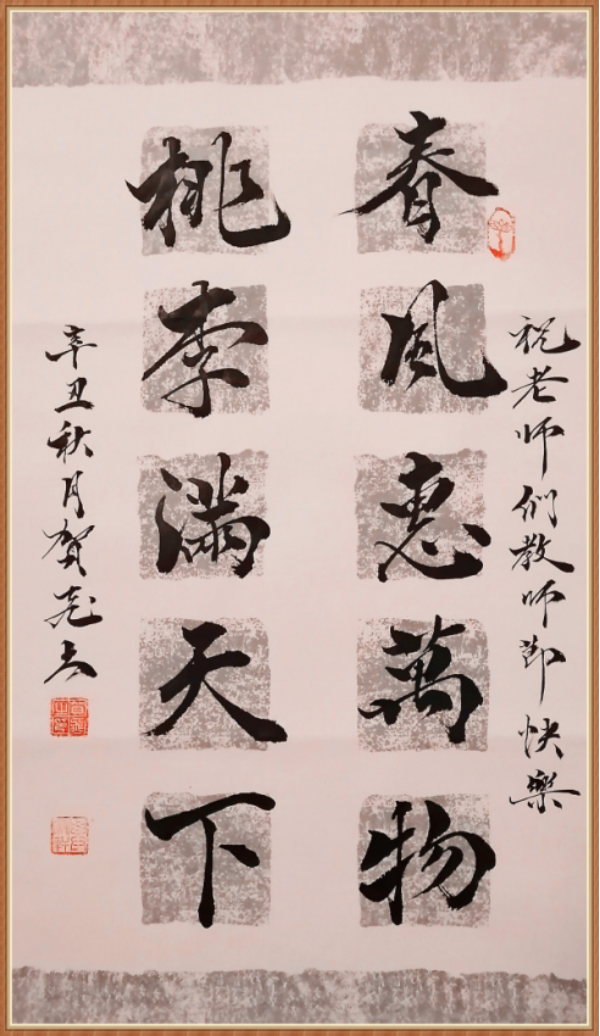 祝老师們教师節快樂
春風惠萬物
桃李滿天下
辛丑秋月賀